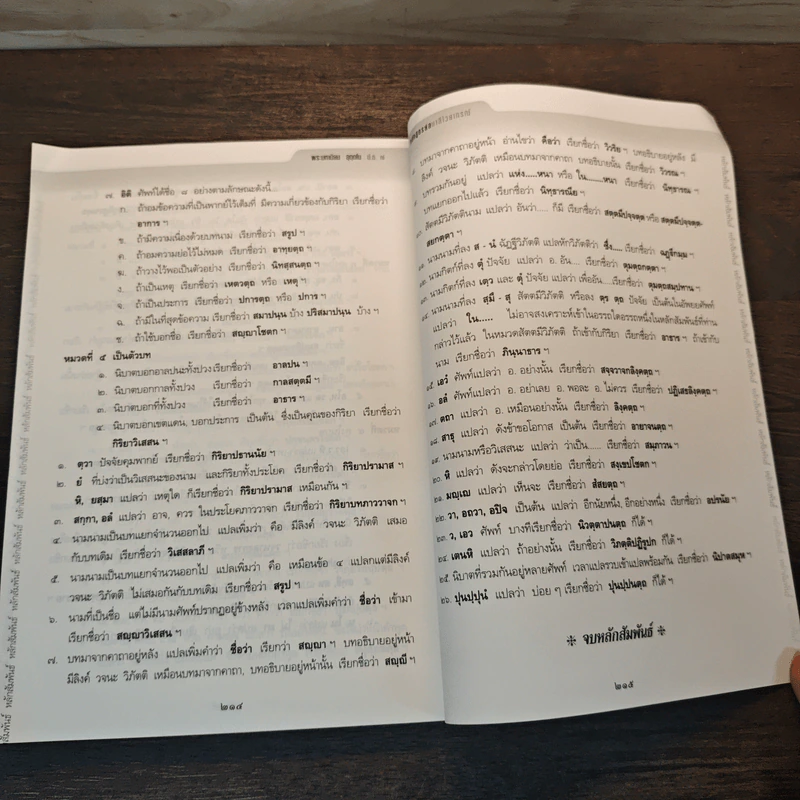 พระเทพปริยัติ
๗. อิติ ศัพท์ได้ชื่อ ๘ อย่างตามลักษณะดังนี้...
ก. ถ้าอมข้อความที่เป็นพากย์ไว้เต็มที่ มีความเกี่ยวข้องกับกิริยา เรียกชื่อว่า
อาการ ฯ
ข. ถ้ามีความเนื่องด้วยบทนาม เรียกชื่อว่า สรูป ฯ
ค. ถ้าอมความย่อไว้ไม่หมด เรียกชื่อว่า อาทฺยตฺถ ฯ
ฆ. ถ้าวางไว้พอเป็นตัวอย่าง เรียกชื่อว่า นิทสฺสนตฺถ ฯ
ง. ถ้าเป็นเหตุ เรียกชื่อว่า เหตวตฺถ หรือ เหตุ ฯ
จ. ถ้าเป็นประการ เรียกชื่อว่า ปการตฺถ หรือ ปการ ฯ
ฉ. ถ้ามีในที่สุดข้อความ เรียกชื่อว่า สมาปนฺน บ้าง ปริสมาปนฺน บ้าง ฯ
ช. ถ้าใช้บอกชื่อ เรียกชื่อว่า สญฺญาโชตก ฯ
หมวดที่ ๔ เป็นตัวบท
๑. นิบาตบอกอาลปนะทั้งปวง เรียกชื่อว่า อาลปน ฯ
๒. นิบาตบอกกาลทั้งปวง เรียกชื่อว่า กาลสตฺตมี ฯ
๓. นิบาตบอกที่ทั้งปวง เรียกชื่อว่า อาธาร ฯ
๔. นิบาตบอกเขตแดน, บอกประการ เป็นต้น ซึ่งเป็นคุณของกิริยา เรียกชื่อว่า
กิริยาวิเสสน ฯ
๑. ตฺวา ปัจจัยคุมพากย์ เรียกชื่อว่า กิริยาปธานนัย ฯ
๒. ยํ ที่บ่งว่าเป็นวิเสสนะของนาม และกิริยาทั้งประโยค เรียกชื่อว่า กิริยาปรามาส ฯ
หิ, ยสฺมา แปลว่า เหตุใด ก็เรียกชื่อว่า กิริยาปรามาส เหมือนกัน ฯ
๓. สกฺกา, อลํ แปลว่า อาจ, ควร ในประโยคภาววาจก เรียกชื่อว่า กิริยาบทภาววาจก ฯ
๔. นามนามเป็นบทแยกจำนวนออกไป แปลเพิ่มว่า คือ มีลิงค์ วจนะ วิภัตติ เสมอ
กับบทเดิม เรียกชื่อว่า วิเสสลาภี ฯ
๕. นามนามเป็นบทแยกจำนวนออกไป แปลเพิ่มว่า คือ เหมือนข้อ ๔ แปลกแต่มีลิงค์
วจนะ วิภัตติ ไม่เสมอกันกับบทเดิม เรียกชื่อว่า สรูป ฯ
๖. นามที่เป็นชื่อ แต่ไม่มีนามศัพท์ปรากฏอยู่ข้างหลัง เวลาแปลเพิ่มคำว่า ชื่อว่า เข้ามา
เรียกชื่อว่า สญฺญาวิเสสน ฯ
๗. บทมาจากคาถาอยู่หลัง แปลเพิ่มคำว่า ชื่อว่า เรียกว่า สญฺญา ฯ บทอธิบายอยู่หน้า
มีลิงค์ วจนะ วิภัตติ เหมือนบทมาจากคาถา, บทอธิบายอยู่หน้านั้น เรียกชื่อว่า สญฺญี ฯ
๒๑๔
บทมาจากคาถาอยู่หน้า อ่านไขว่า คือว่า เรียกชื่อว่า วิวริย ฯ บทอธิบายอยู่หลัง มี
ลิงค์ วจนะ วิภัตติ เหมือนบทมาจากคาถา บทอธิบายนั้น เรียกชื่อว่า วิวรณ ฯ
บทรวมกันอยู่ แปลว่า แห่ง.....หนา หรือ ใน.....หนา เรียกชื่อว่า นิทฺธารณ ฯ
บทแยกออกไปแล้ว เรียกชื่อว่า นิทฺธารณีย ฯ
สัตตมีวิภัตตินาม แปลว่า อันว่า..... ก็มี เรียกชื่อว่า สตฺตมีปจฺจตฺต หรือ สตฺตมีปจฺจตฺต-
สยกตฺตา ฯ
๑๑. นามนามที่ลง ส - นํ ฉัฏฐีวิภัตติ แปลหักวิภัตติว่า ซึ่ง..... เรียกชื่อว่า ฉฏฺฐีกมฺม ฯ
๑๒. นามกิตก์ที่ลง ตุํ ปัจจัย แปลว่า อ. อัน.... เรียกชื่อว่า ตุมตฺถกตฺตา ฯ
๑๓. นามกิตก์ที่ลง เตฺว และ ตุํ ปัจจัย แปลว่า เพื่ออัน....เรียกชื่อว่า ตุมตฺถสมฺปทาน ฯ
๑๔. นามนามที่ลง สฺมึ - สุ สัตตมีวิภัตติ หรือลง ตฺร ตฺถ ปัจจัย เป็นต้นในอัพยยศัพท์
แปลว่า ใน..... ไม่อาจสงเคราะห์เข้าในอรรถใดอรรถหนึ่งในหลักสัมพันธ์ที่ท่าน
กล่าวไว้แล้ว ในหมวดสัตตมีวิภัตติ ถ้าเข้ากับกิริยา เรียกชื่อว่า อาธาร ฯ ถ้าเข้ากับ
นาม เรียกชื่อว่า ภินฺนาธาร ฯ
๑๕. เอวํ ศัพท์แปลว่า อ. อย่างนั้น เรียกชื่อว่า สจฺจวาจกลิงฺคตฺถ ฯ
๑๖. อลํ ศัพท์แปลว่า อ. อย่าเลย อ. พอละ อ. ไม่ควร เรียกชื่อว่า ปฏิเสธลิงฺคตฺถ ฯ
๑๗. ตถา แปลว่า อ. เหมือนอย่างนั้น เรียกชื่อว่า ลิงฺคตฺถ ฯ
๑๘. สาธุ แปลว่า ดังข้าขอโอกาส เป็นต้น เรียกชื่อว่า อายาจนตฺถ ฯ
๑๙. นามนามหรือวิเสสนะ แปลว่า ว่าเป็น...... เรียกชื่อว่า สมฺภาวน ฯ
๒๐. หิ แปลว่า ดังจะกล่าวโดยย่อ เรียกชื่อว่า สงฺเขปโชตก ฯ
๒๑. มญฺเญ แปลว่า เห็นจะ เรียกชื่อว่า สํสยตฺถ ฯ
๒๒. วา, อถวา, อปิจ เป็นต้น แปลว่า อีกนัยหนึ่ง, อีกอย่างหนึ่ง เรียกชื่อว่า อปรนัย ฯ
๒๓. ว, เอว ศัพท์ บางทีเรียกชื่อว่า นิวตฺตาปนตฺถ ก็ได้ ฯ
๒๔. เตนหิ แปลว่า ถ้าอย่างนั้น เรียกชื่อว่า วิภตฺติปฏิรูปก ก็ได้ ฯ
๒๕. นิบาตที่รวมกันอยู่หลายศัพท์ เวลาแปลรวบเข้าแปลพร้อมกัน เรียกชื่อว่า นิปาตสมุห ฯ
๒๖. ปุนปฺปุนํ แปลว่า บ่อย ๆ เรียกชื่อว่า ปุนปฺปุนตฺถ ก็ได้ ฯ
จบหลักสัมพันธ์
๒๑๕
หลักสัมพันธ์ หลักสัมพันธ์ หลักสัมพันธ์ หลักสัมพันธ์ หลักสัมพันธ์ หลักสัมพันธ์